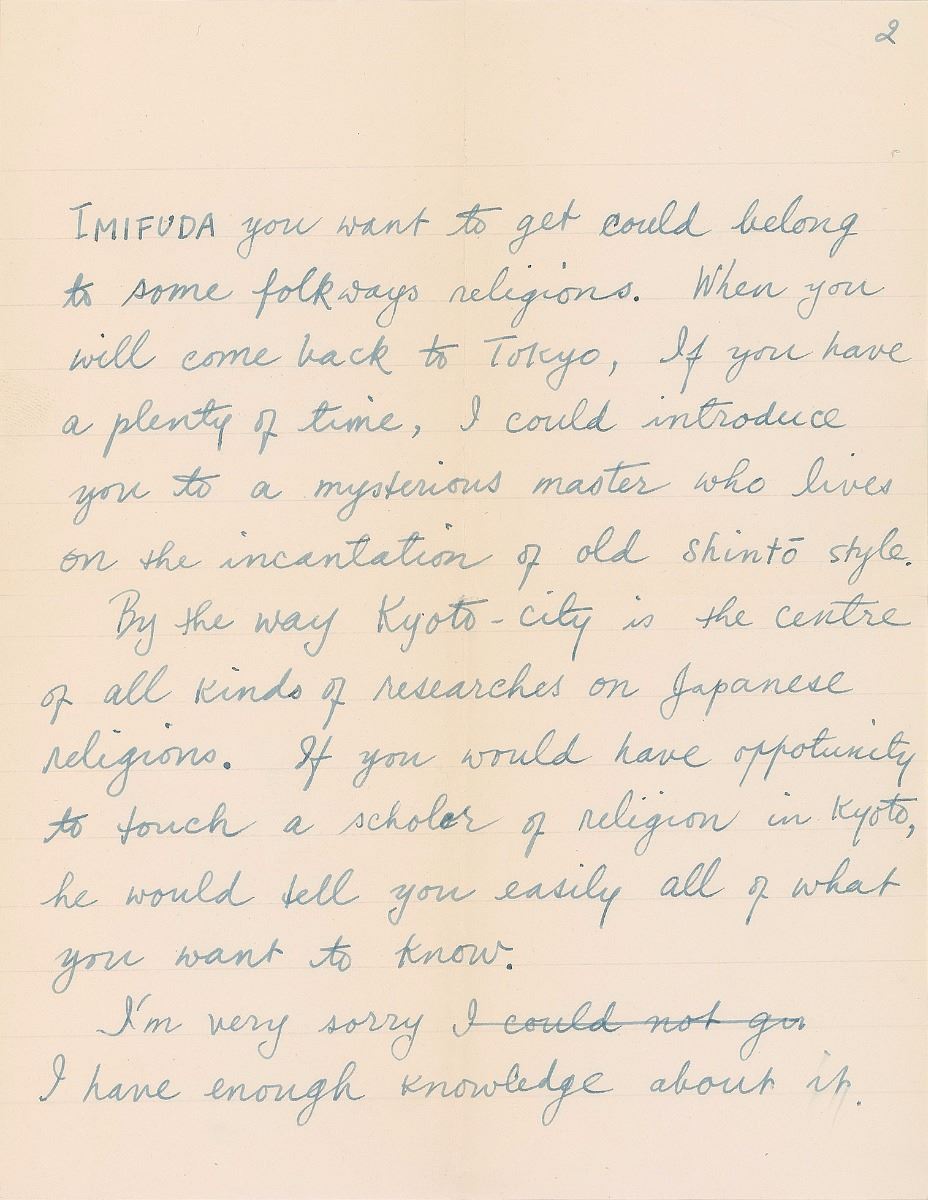 2
IMIFUDA you want to get could belong
to some folkways religions. When you
will come back to Tokyo, If you have
a plenty of time, I could introduce
you to a mysterious master who lives
on the incantation of old shintō style.
By the way Kyoto-city is the centre
of all kinds of researches on Japanese
religions. If you would have oppotunity
to touch a scholar of religion in Kyoto,
he would tell you easily all of what
you want to know.
I'm very sorry I could not giv
I have enough knowledge about it.